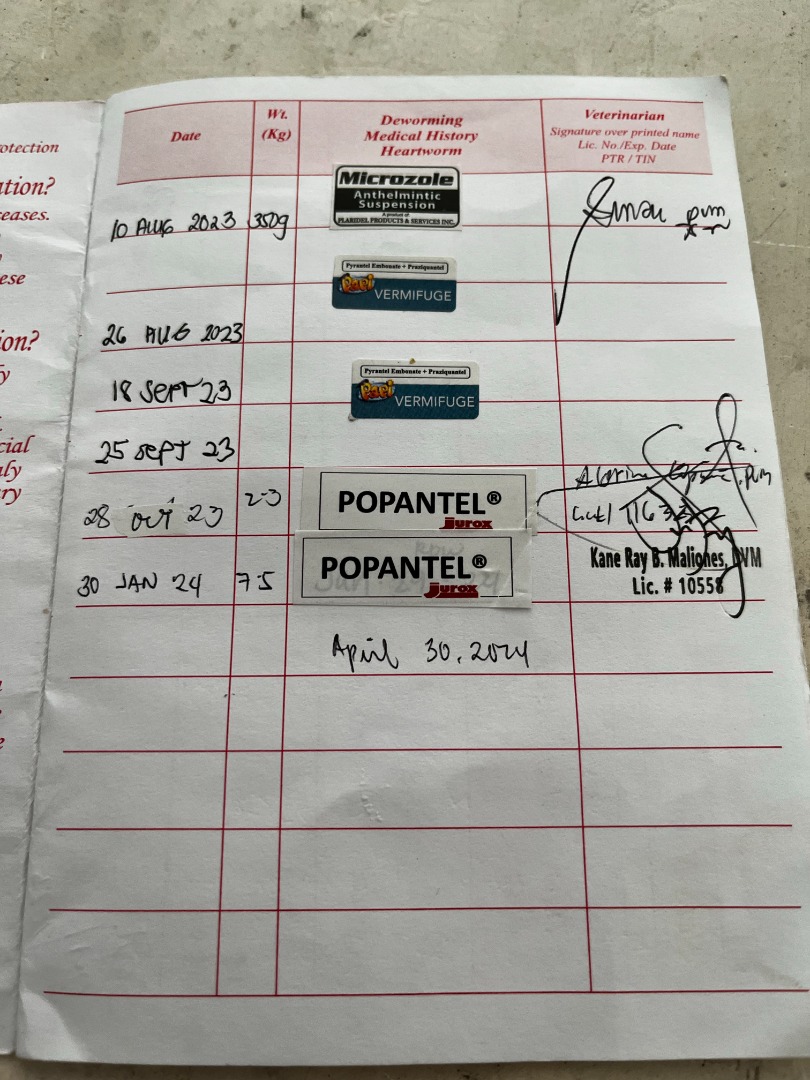 otection
ation?
eases.
ese
ion?
y
cial
aly
ry
e
Date
Wt.
(Kg)
Deworming
Medical History
Heartworm
Veterinarian
Signature over printed name
Lic. No./Exp. Date
PTR / TIN
10 AUG 2023 350g
Microzole
Anthelmintic
Suspension
A product of:
PLARIDEL PRODUCTS & SERVICES INC.
DVM
Pyrantel Embonate + Praziquantel
Papi VERMIFUGE
26 AUG 2023
18 Sept 23
Pyrantel Embonate + Praziquantel
Papi VERMIFUGE
25 sept 23
28 oct 23 2.3
POPANTEL®
jurox
30 JAN 24 7.5
POPANTEL®
jurox
Kane Ray B. Maliones, DVM
Lic. # 10558
April 30, 2024